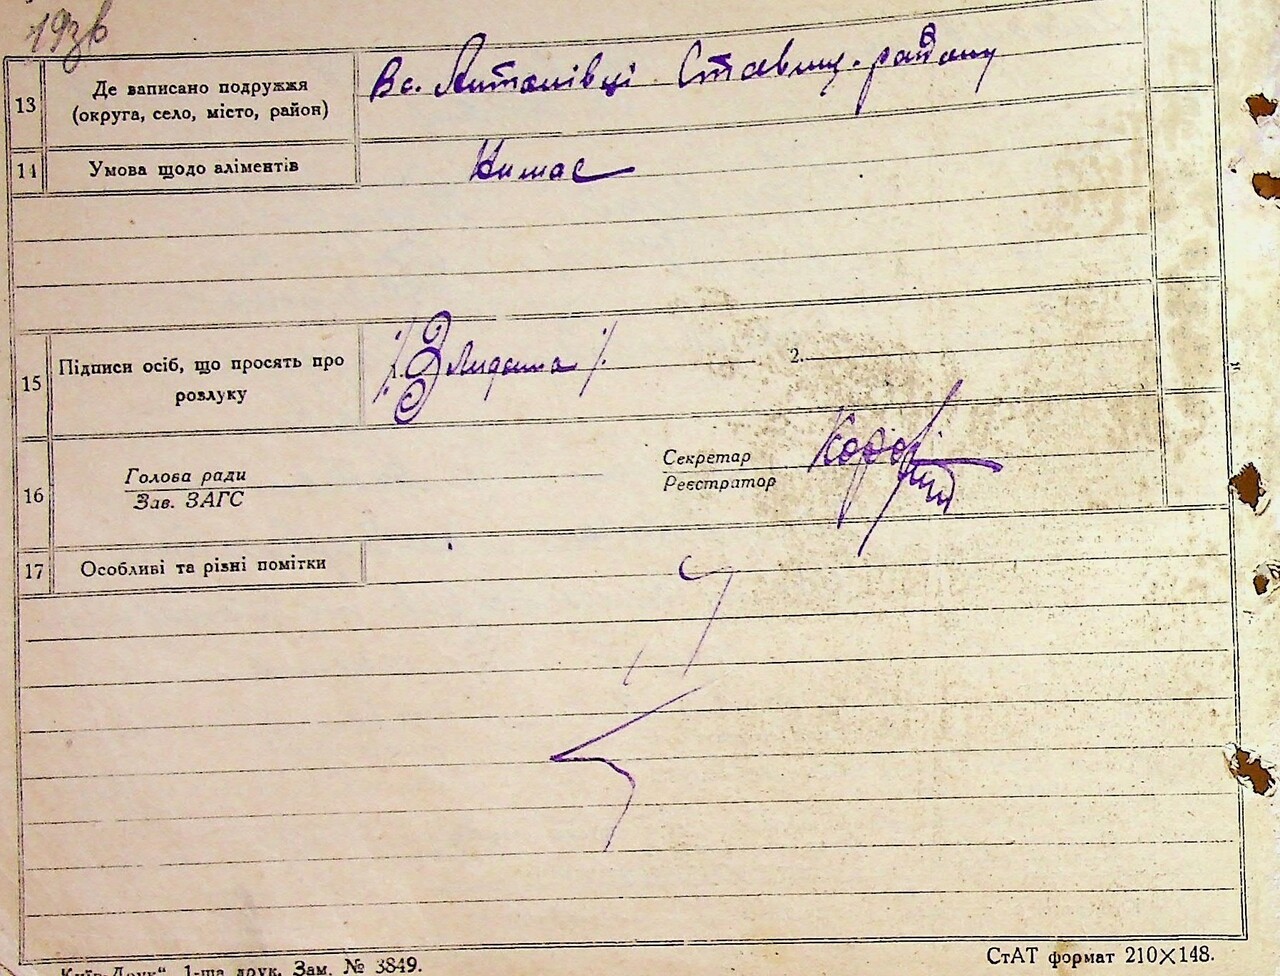 193в
13 Де записано подружжя (округа, село, місто, район) В с. Антонівці Ставищ. району
14 Умова щодо аліментів Нимає
15 Підписи осіб, що просять про розлуку 1. 2.
16 Голова ради Зав. ЗАГС Секретар Реєстратор
17 Особливі та різні помітки
„Київ-Друк“, 1-ша друк. Зам. № 3849.
СтАТ формат 210×148.